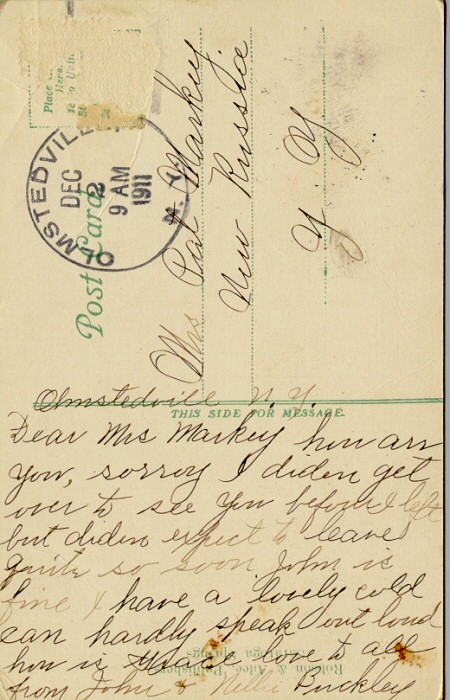 Place
Here
OLMSTEDVILLE
N.Y.
DEC
2
9 AM
1911
Post Card
Mrs Pat Markey
New Russia
N Y
Olmstedville N. Y.
THIS SIDE FOR MESSAGE.
Dear Mrs Markey how are
you, sorroy I diden get
over to see you before I left
but diden expect to leave
quite so soon John is
fine I have a lovely cold
can hardly speak out loud
how is love to all
from John & Nellie Buckley
Robson & Adee Publishers
Saratoga Springs